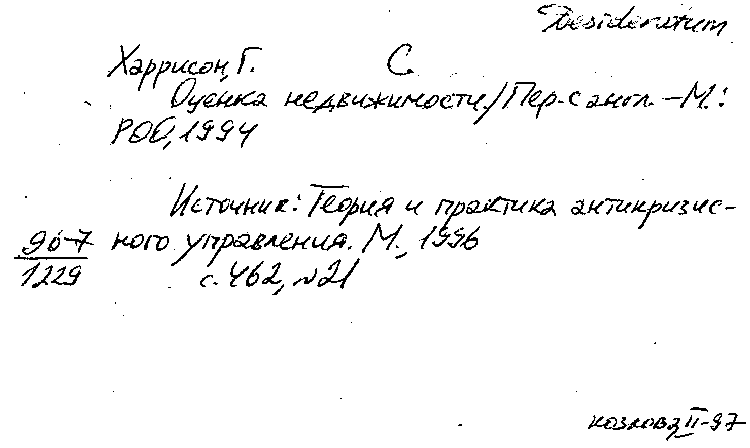 Desideratum
Харрисон, Г. С.
Оценка недвижимости./Пер. с англ. – М.:
РОО, 1994
Источник: Теория и практика антикризис-
96-7 ного управления. М., 1996
1229 с. 462, №21
Козлова, II-97